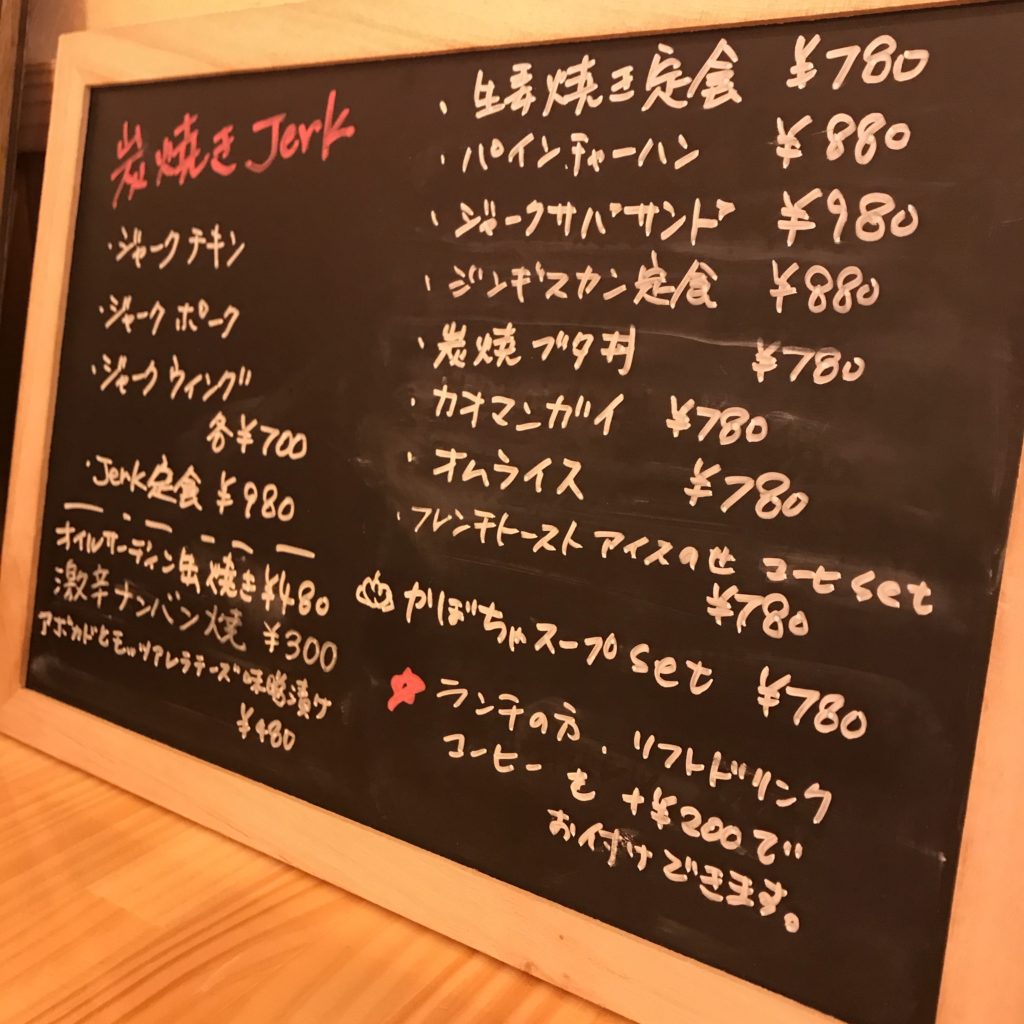 炭焼き Jerk
・ジャークチキン
・ジャークポーク
・ジャークウィング
各¥700
・Jerk定食 ¥980
オイルサーディン缶焼き ¥480
激辛ナンバン焼 ¥300
アボカドとモッツアレラチーズ味噌漬け
¥480
・生姜焼き定食 ¥780
・パインチャーハン ¥880
・ジャークサバサンド ¥980
・ジンギスカン定食 ¥880
・炭焼ブタ丼 ¥780
・カオマンガイ ¥780
・オムライス ¥780
・フレンチトースト アイスのせ コーヒset
¥780
かぼちゃスープset ¥780
ランチの方、ソフトドリンク
コーヒーを +¥200で
お付けできます。